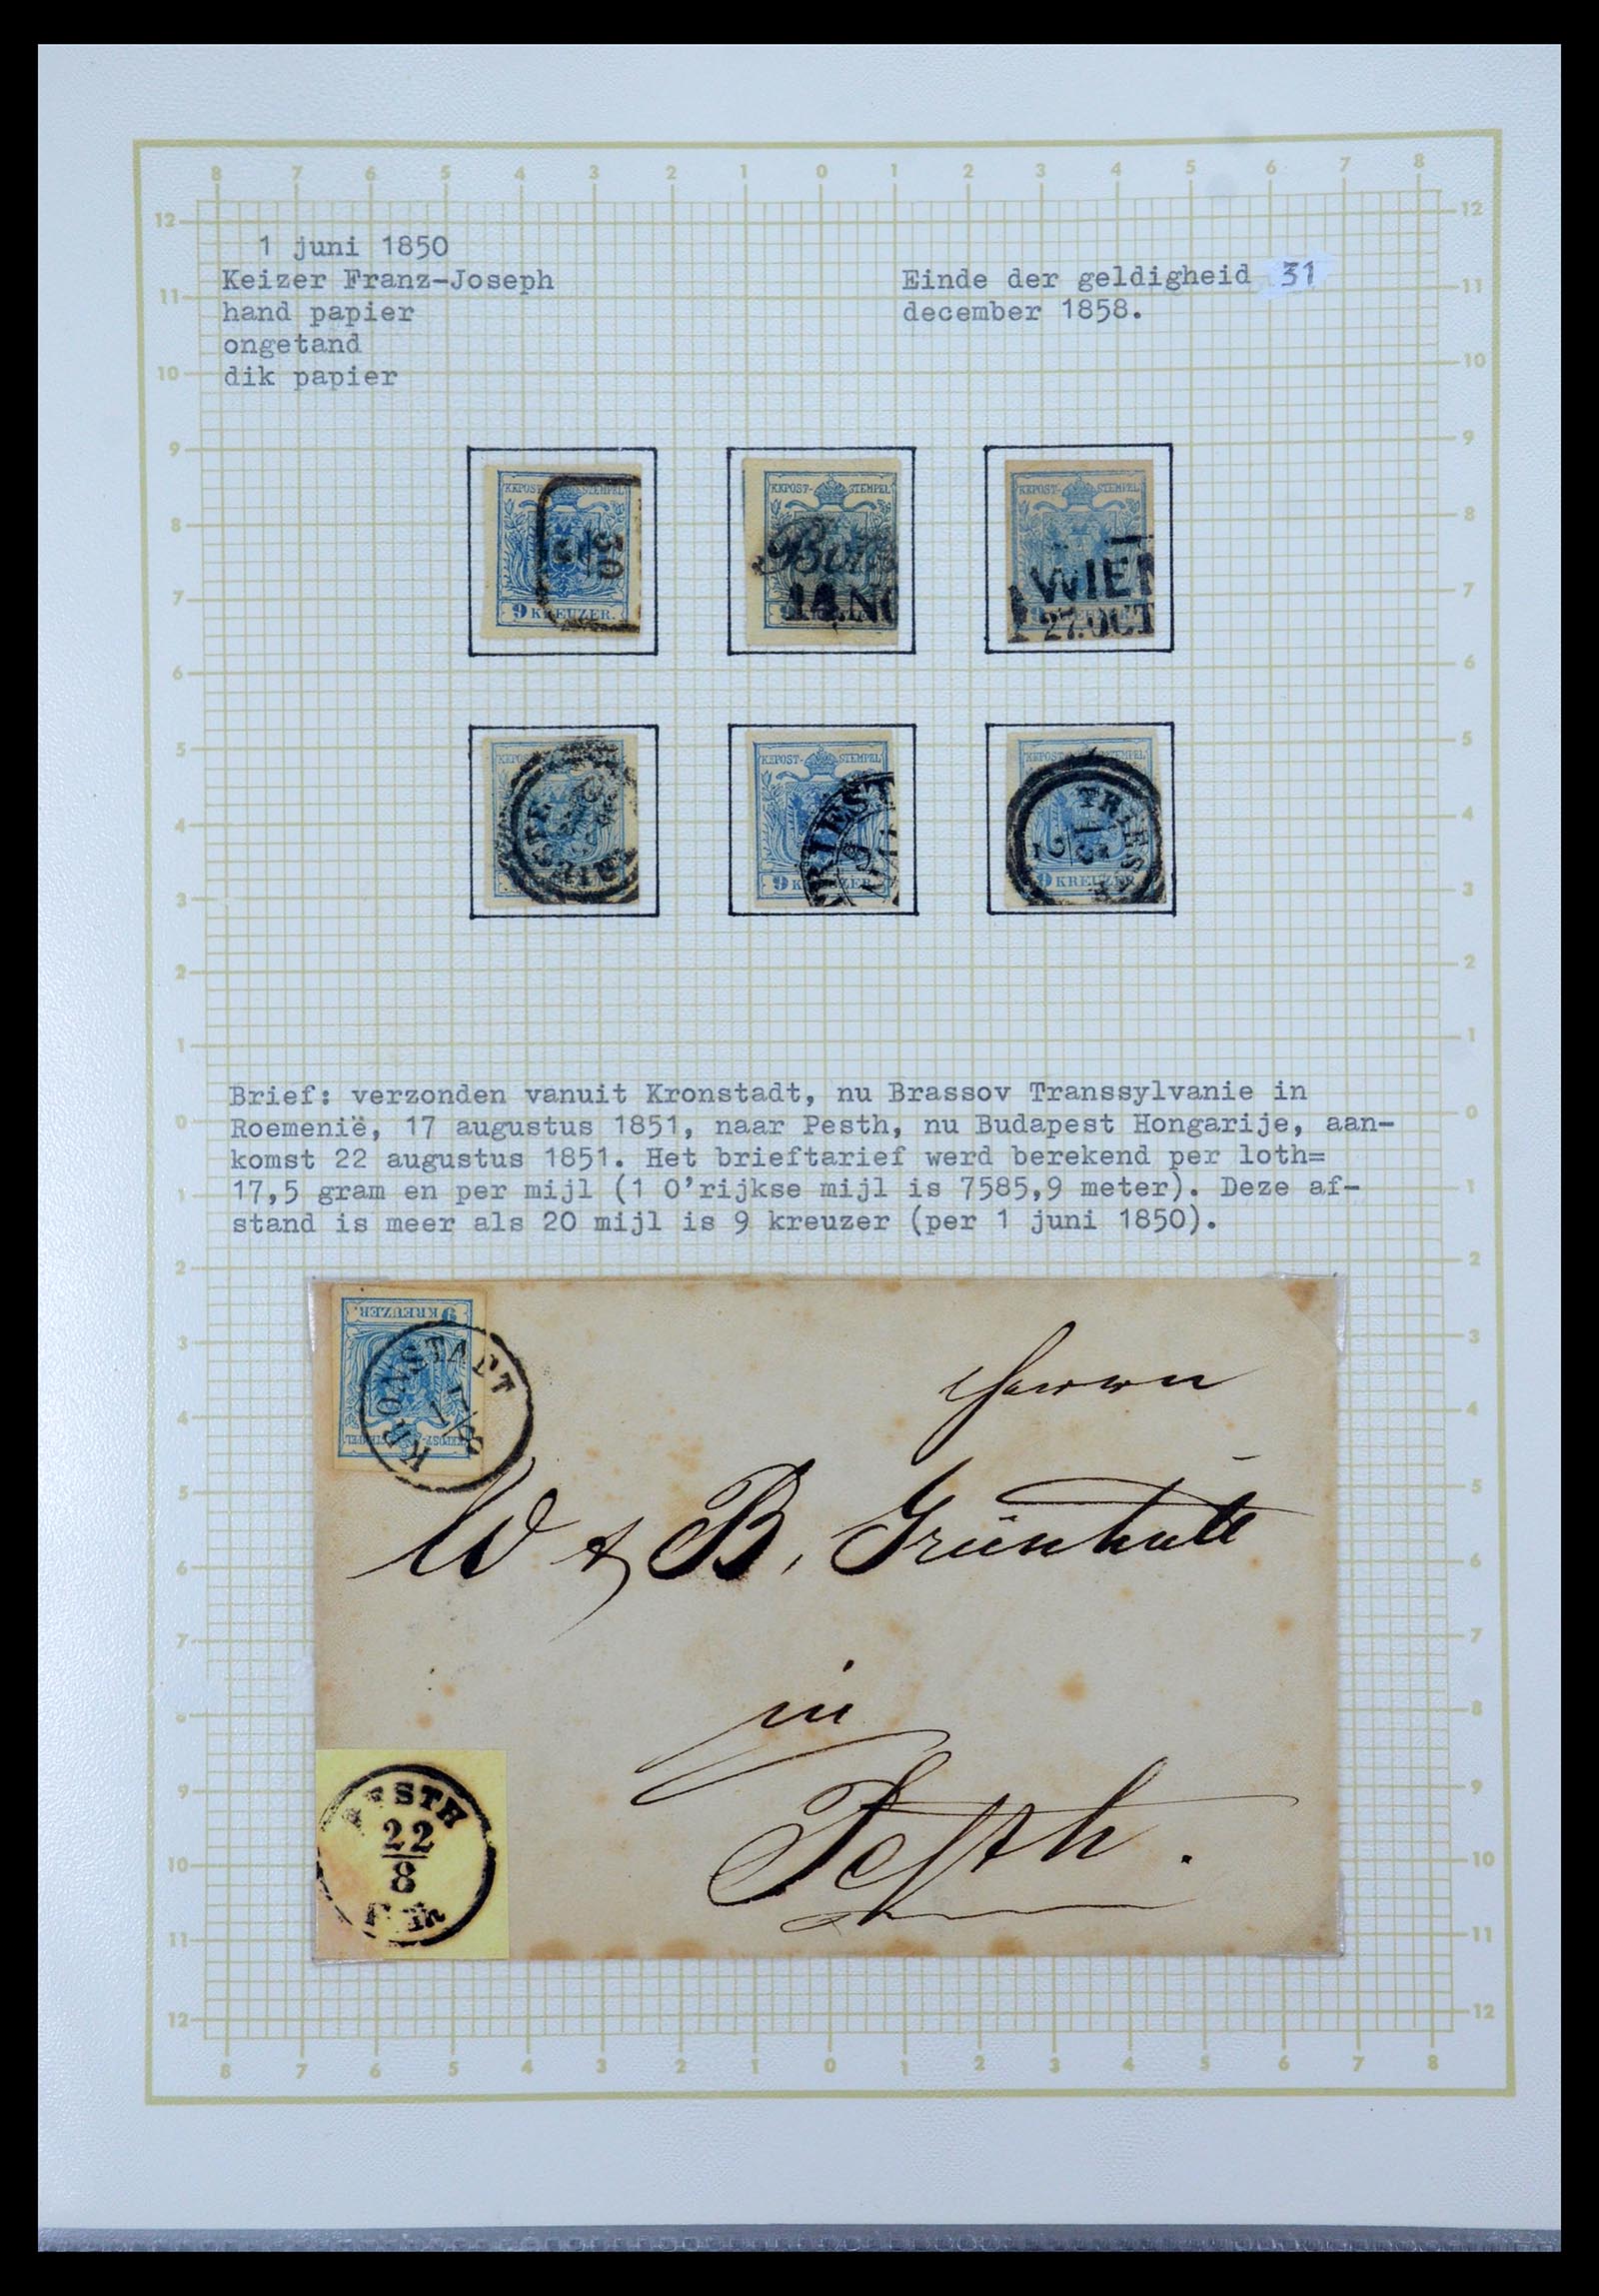 1 juni 1850
Keizer Franz-Joseph
hand papier
ongetand
dik papier
Einde der geldigheid 31
december 1858.
KKPOST-STEMPEL
9 KREUZER.
KKPOST-STEMPEL
14.NO
KKPOST-STEMPEL
WIEN
27.OCT
KKPOST-STEMPEL
RIEST
9 KREUZER
TRIEST
9 KREUZER
Brief: verzonden vanuit Kronstadt, nu Brassov Transsylvanie in
Roemenië, 17 augustus 1851, naar Pesth, nu Budapest Hongarije, aan-
komst 22 augustus 1851. Het brieftarief werd berekend per loth=
17,5 gram en per mijl (1 O'rijkse mijl is 7585,9 meter). Deze af-
stand is meer als 20 mijl is 9 kreuzer (per 1 juni 1850).
9 KREUZER.
KRONSTADT
17/8
Herrn
W & B, Grünhut
in
Pesth.
PESTH
22
8
Früh